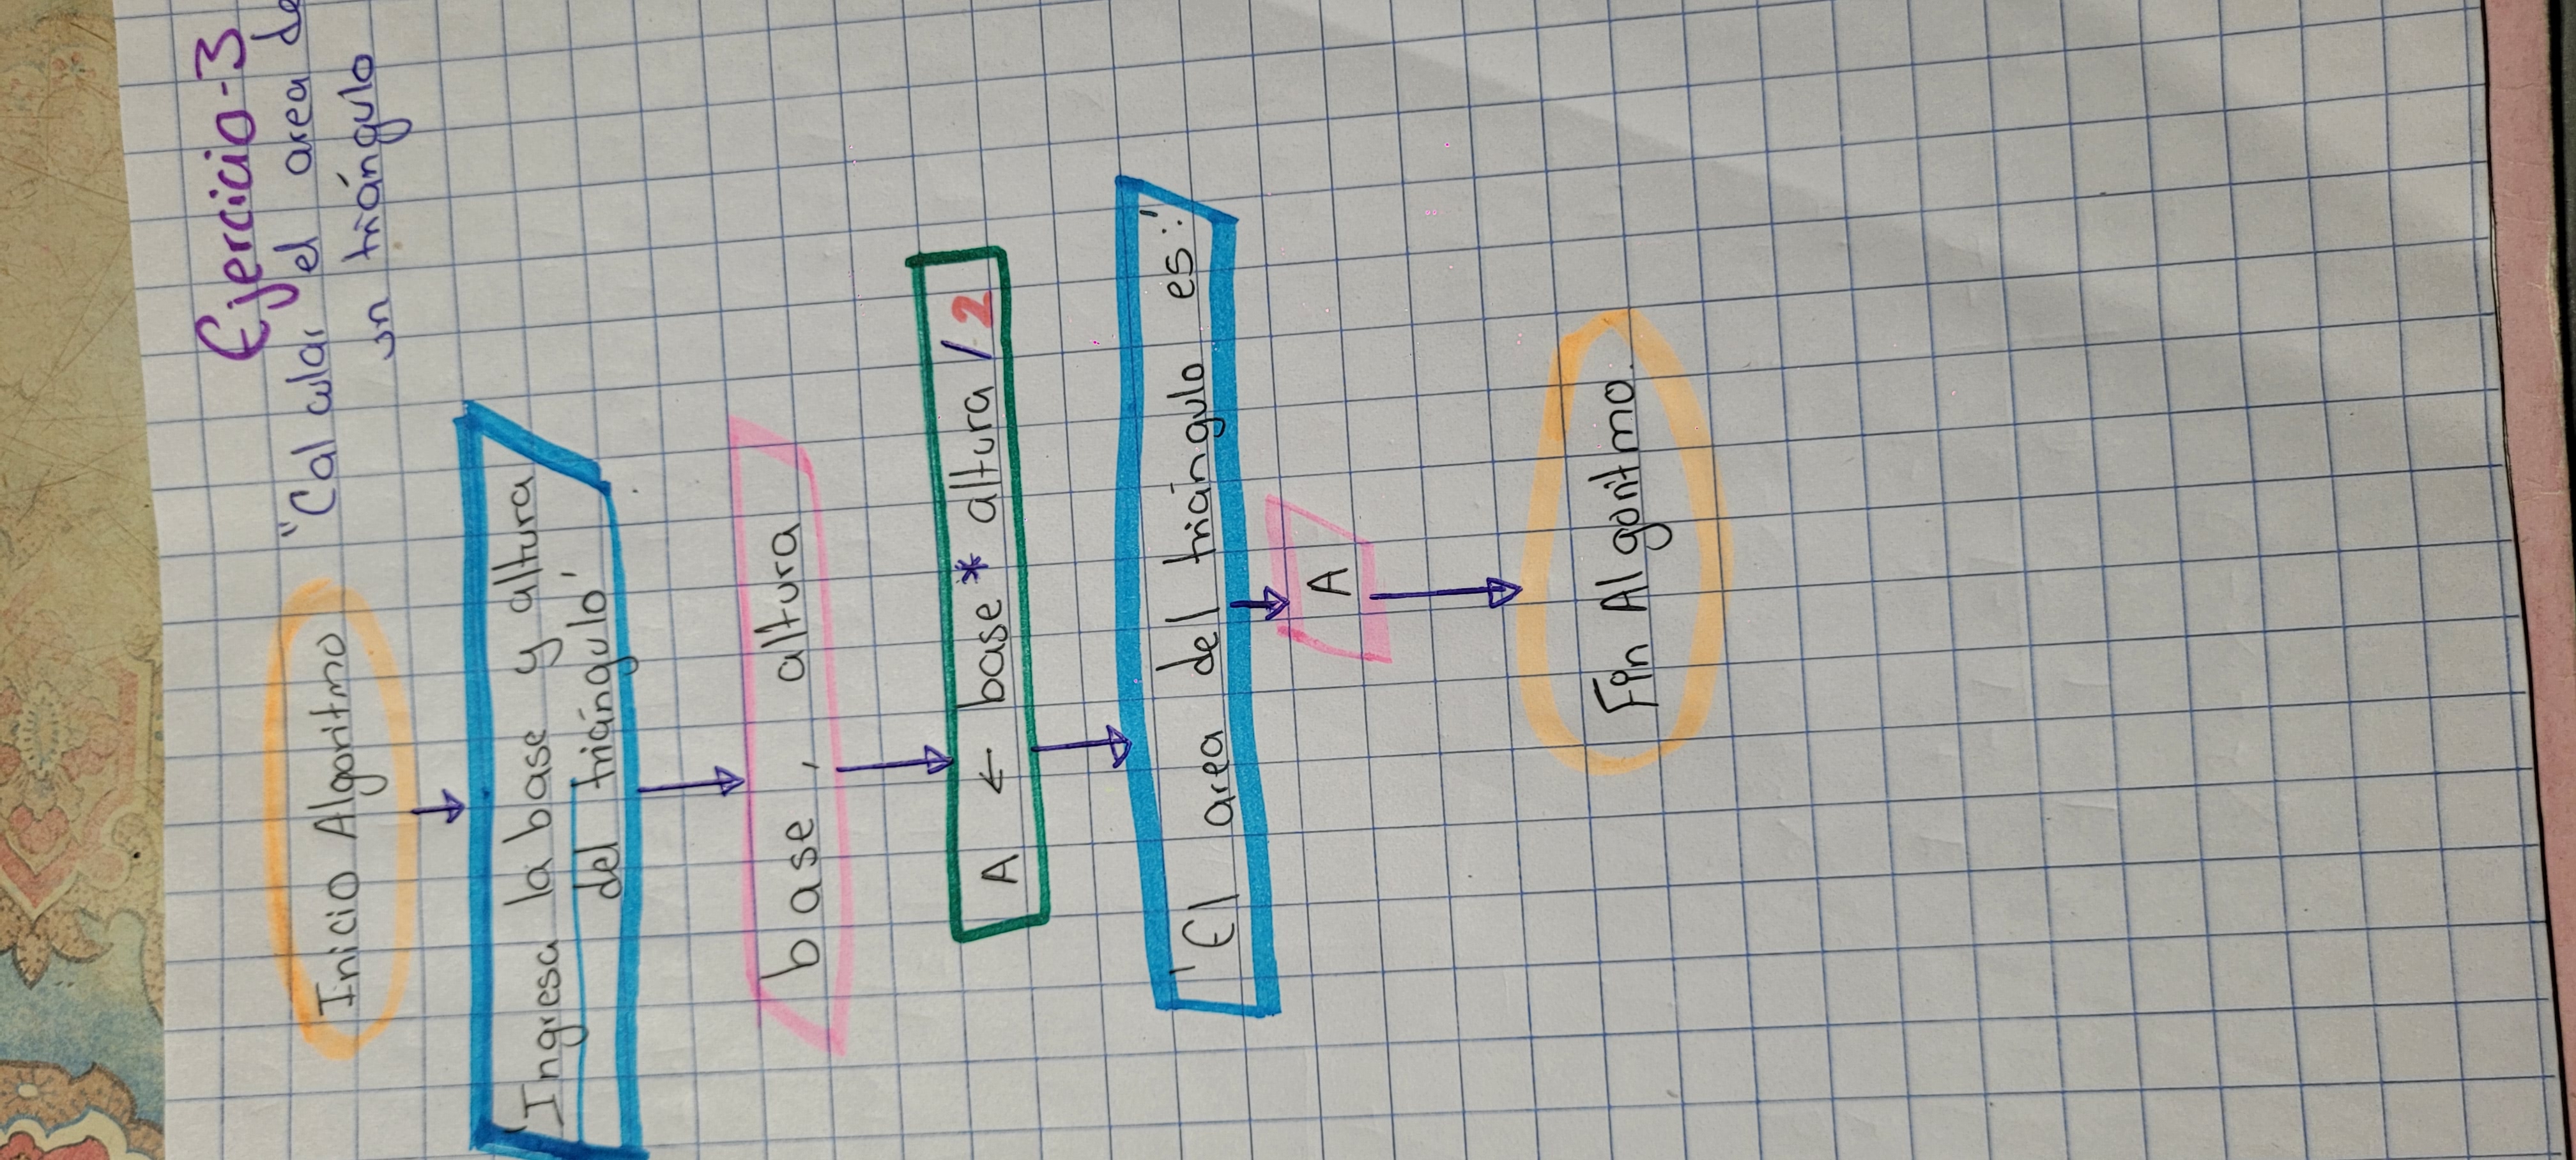 Ejercicio-3
"Calcular el area de
un triángulo
Inicio Algoritmo
'Ingresa la base y altura
del triángulo'
base, altura
A ← base * altura / 2
'El area del triángulo es:'
A
Fin Algoritmo.